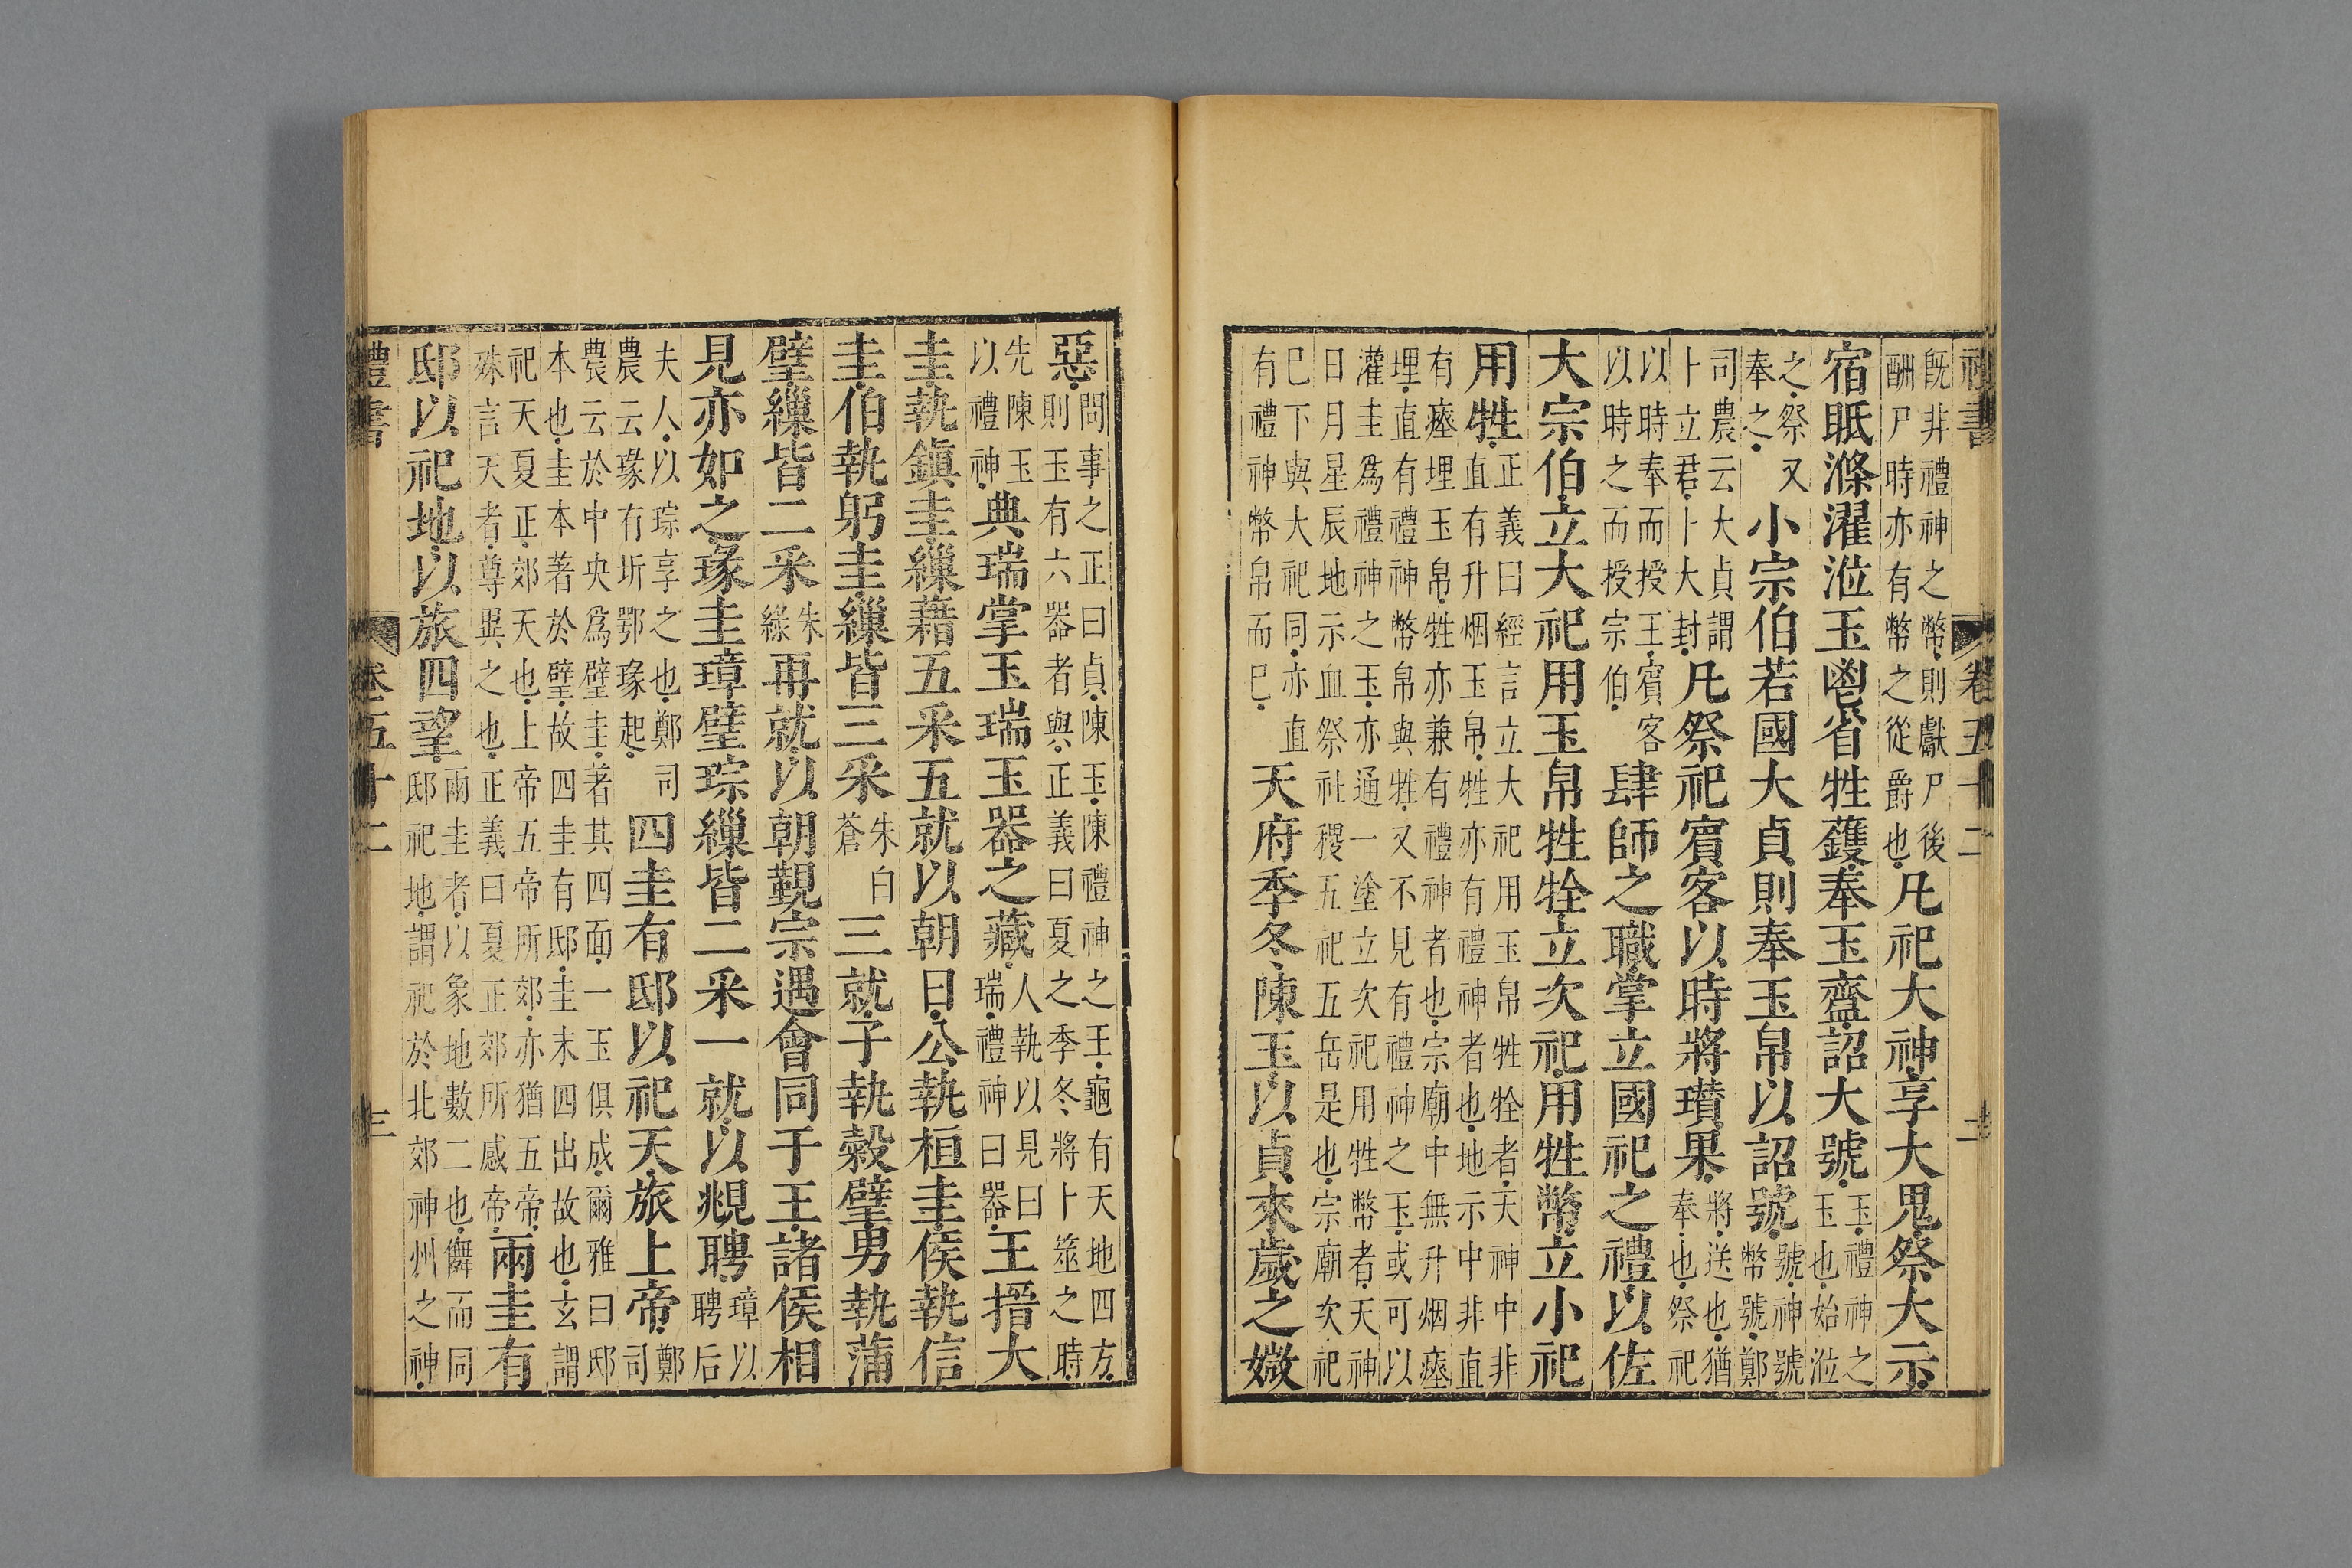 禮書
卷五十二
既非禮神之幣則獻尸後
酬尸時亦有幣之從爵也凡祀大神享大鬼祭大示
宿眂滌濯涖玉鬯省牲鑊奉玉齍詔大號玉禮神之
玉也始涖
之祭又
奉之小宗伯若國大貞則奉玉帛以詔號號神號
幣號鄭
司農云大貞謂
卜立君卜大封凡祭祀賓客以時將瓚果將送也猶
奉也祭祀
以時奉而授王賓客
以時之而授宗伯肆師之職掌立國祀之禮以佐
大宗伯立大祀用玉帛牲牷立次祀用牲幣立小祀
用牲正義曰經言立大祀用玉帛牲牷者天神中非
直有升烟玉帛牲亦有禮神者也地示中非直
有瘞埋玉帛牲亦兼有禮神者也宗廟中無升烟瘞
埋直有禮神幣帛與牲又不見有禮神之玉或可以
灌圭爲禮神之玉亦通一塗立次祀用牲幣者天神
日月星辰地示血祭社稷五祀五岳是也宗廟次祀
巳下與大祀同亦直
有禮神幣帛而巳天府季冬陳玉以貞來歲之媺
惡問事之正曰貞陳玉陳禮神之玉龜有天地四方
則玉有六器者與正義曰夏之季冬將卜筮之時
先陳玉
以禮神典瑞掌玉瑞玉器之藏人執以見曰
瑞禮神曰器王搢大
圭執鎮圭繅藉五采五就以朝日公執桓圭侯執信
圭伯執躬圭繅皆三采朱白
蒼三就子執榖璧男執蒲
璧繅皆二采朱
綠再就以朝覲宗遇會同于王諸侯相
見亦如之瑑圭璋璧琮繅皆二采一就以覜聘璋以
聘后
夫人以琮享之也鄭司
農云瑑有圻鄂瑑起四圭有邸以祀天旅上帝鄭
司
農云於中央爲璧圭著其四面一玉俱成爾雅曰邸
本也圭本著於璧故四圭有邸圭末四出故也玄謂
祀天夏正郊天也上帝五帝所郊亦猶五帝
殊言天者尊異之也正義曰夏正郊所感帝兩圭有
邸以祀地以旅四望兩圭者以象地數二也僢而同
邸祀地謂祀於北郊神州之神
禮書
卷五十二
三